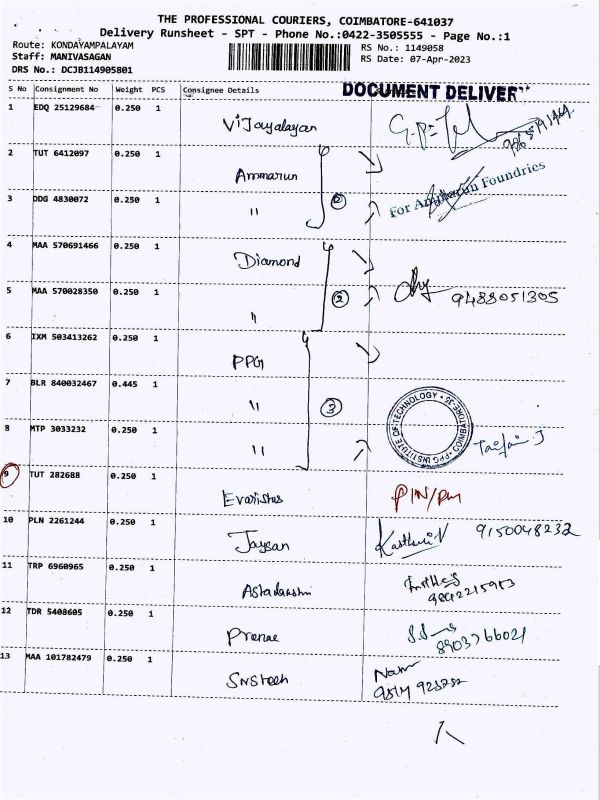 THE PROFESSIONAL COURIERS, COIMBATORE-641037
Delivery Runsheet - SPT - Phone No.:0422-3505555 - Page No.:1
Route: KONDAYAMPALAYAM
RS No.: 1149058
Staff: MANIVASAGAN
RS Date: 07-Apr-2023
DRS No.: DCJB114905801
DOCUMENT DELIVER
S No Consignment No Weight PCS Consignee Details
1 EDQ 25129684 0.250 1 Vijayalayan
2 TUT 6412097 0.250 1 Ammarun
3 DDG 4830072 0.250 1 " 2 For Foundries
4 MAA 570691466 0.250 1 Diamond
5 MAA 570028350 0.250 1 " 2 9488051305
6 IXM 503413262 0.250 1 PPG
7 BLR 840032467 0.445 1 " 3
PPG INSTITUTE OF TECHNOLOGY
8 MTP 3033232 0.250 1 "
9 TUT 282688 0.250 1 Evaristus PIN/PM
10 PLN 2261244 0.250 1 Jaysan 9150048232
11 TRP 6960965 0.250 1
12 TDR 5408605 0.250 1 Pranae 8903766021
13 MAA 101782479 0.250 1